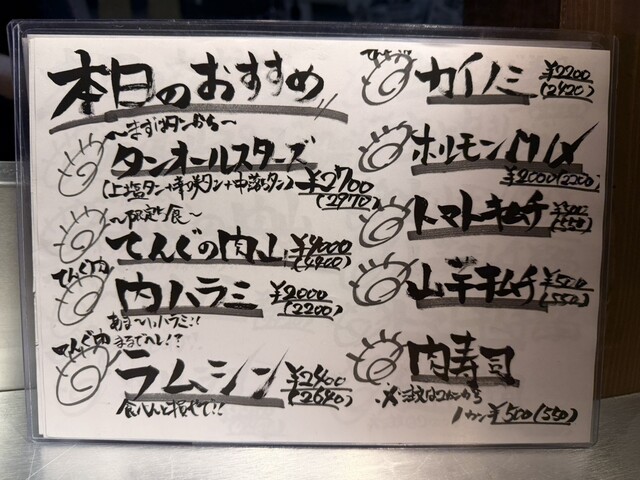 本日のおすすめ
〜まずはタンから〜
タンオールスターズ
(上塩タン+
タン+中落ちタン) ¥2700
(2970)
〜限定食〜
てんぐの肉山 ¥4000
(4400)
てんぐ内
内ハラミ ¥2000
(2200)
あま〜いハラミ!!
まるでヘレ!?
ラムシン ¥2400
(2640)
食べんと損やで!!
カイノミ ¥2200
(2420)
ホルモン
¥2000(2200)
トマトキムチ ¥500
(550)
山芋キムチ ¥500
(550)
肉寿司
※注文は2カンから
1カン ¥500(550)